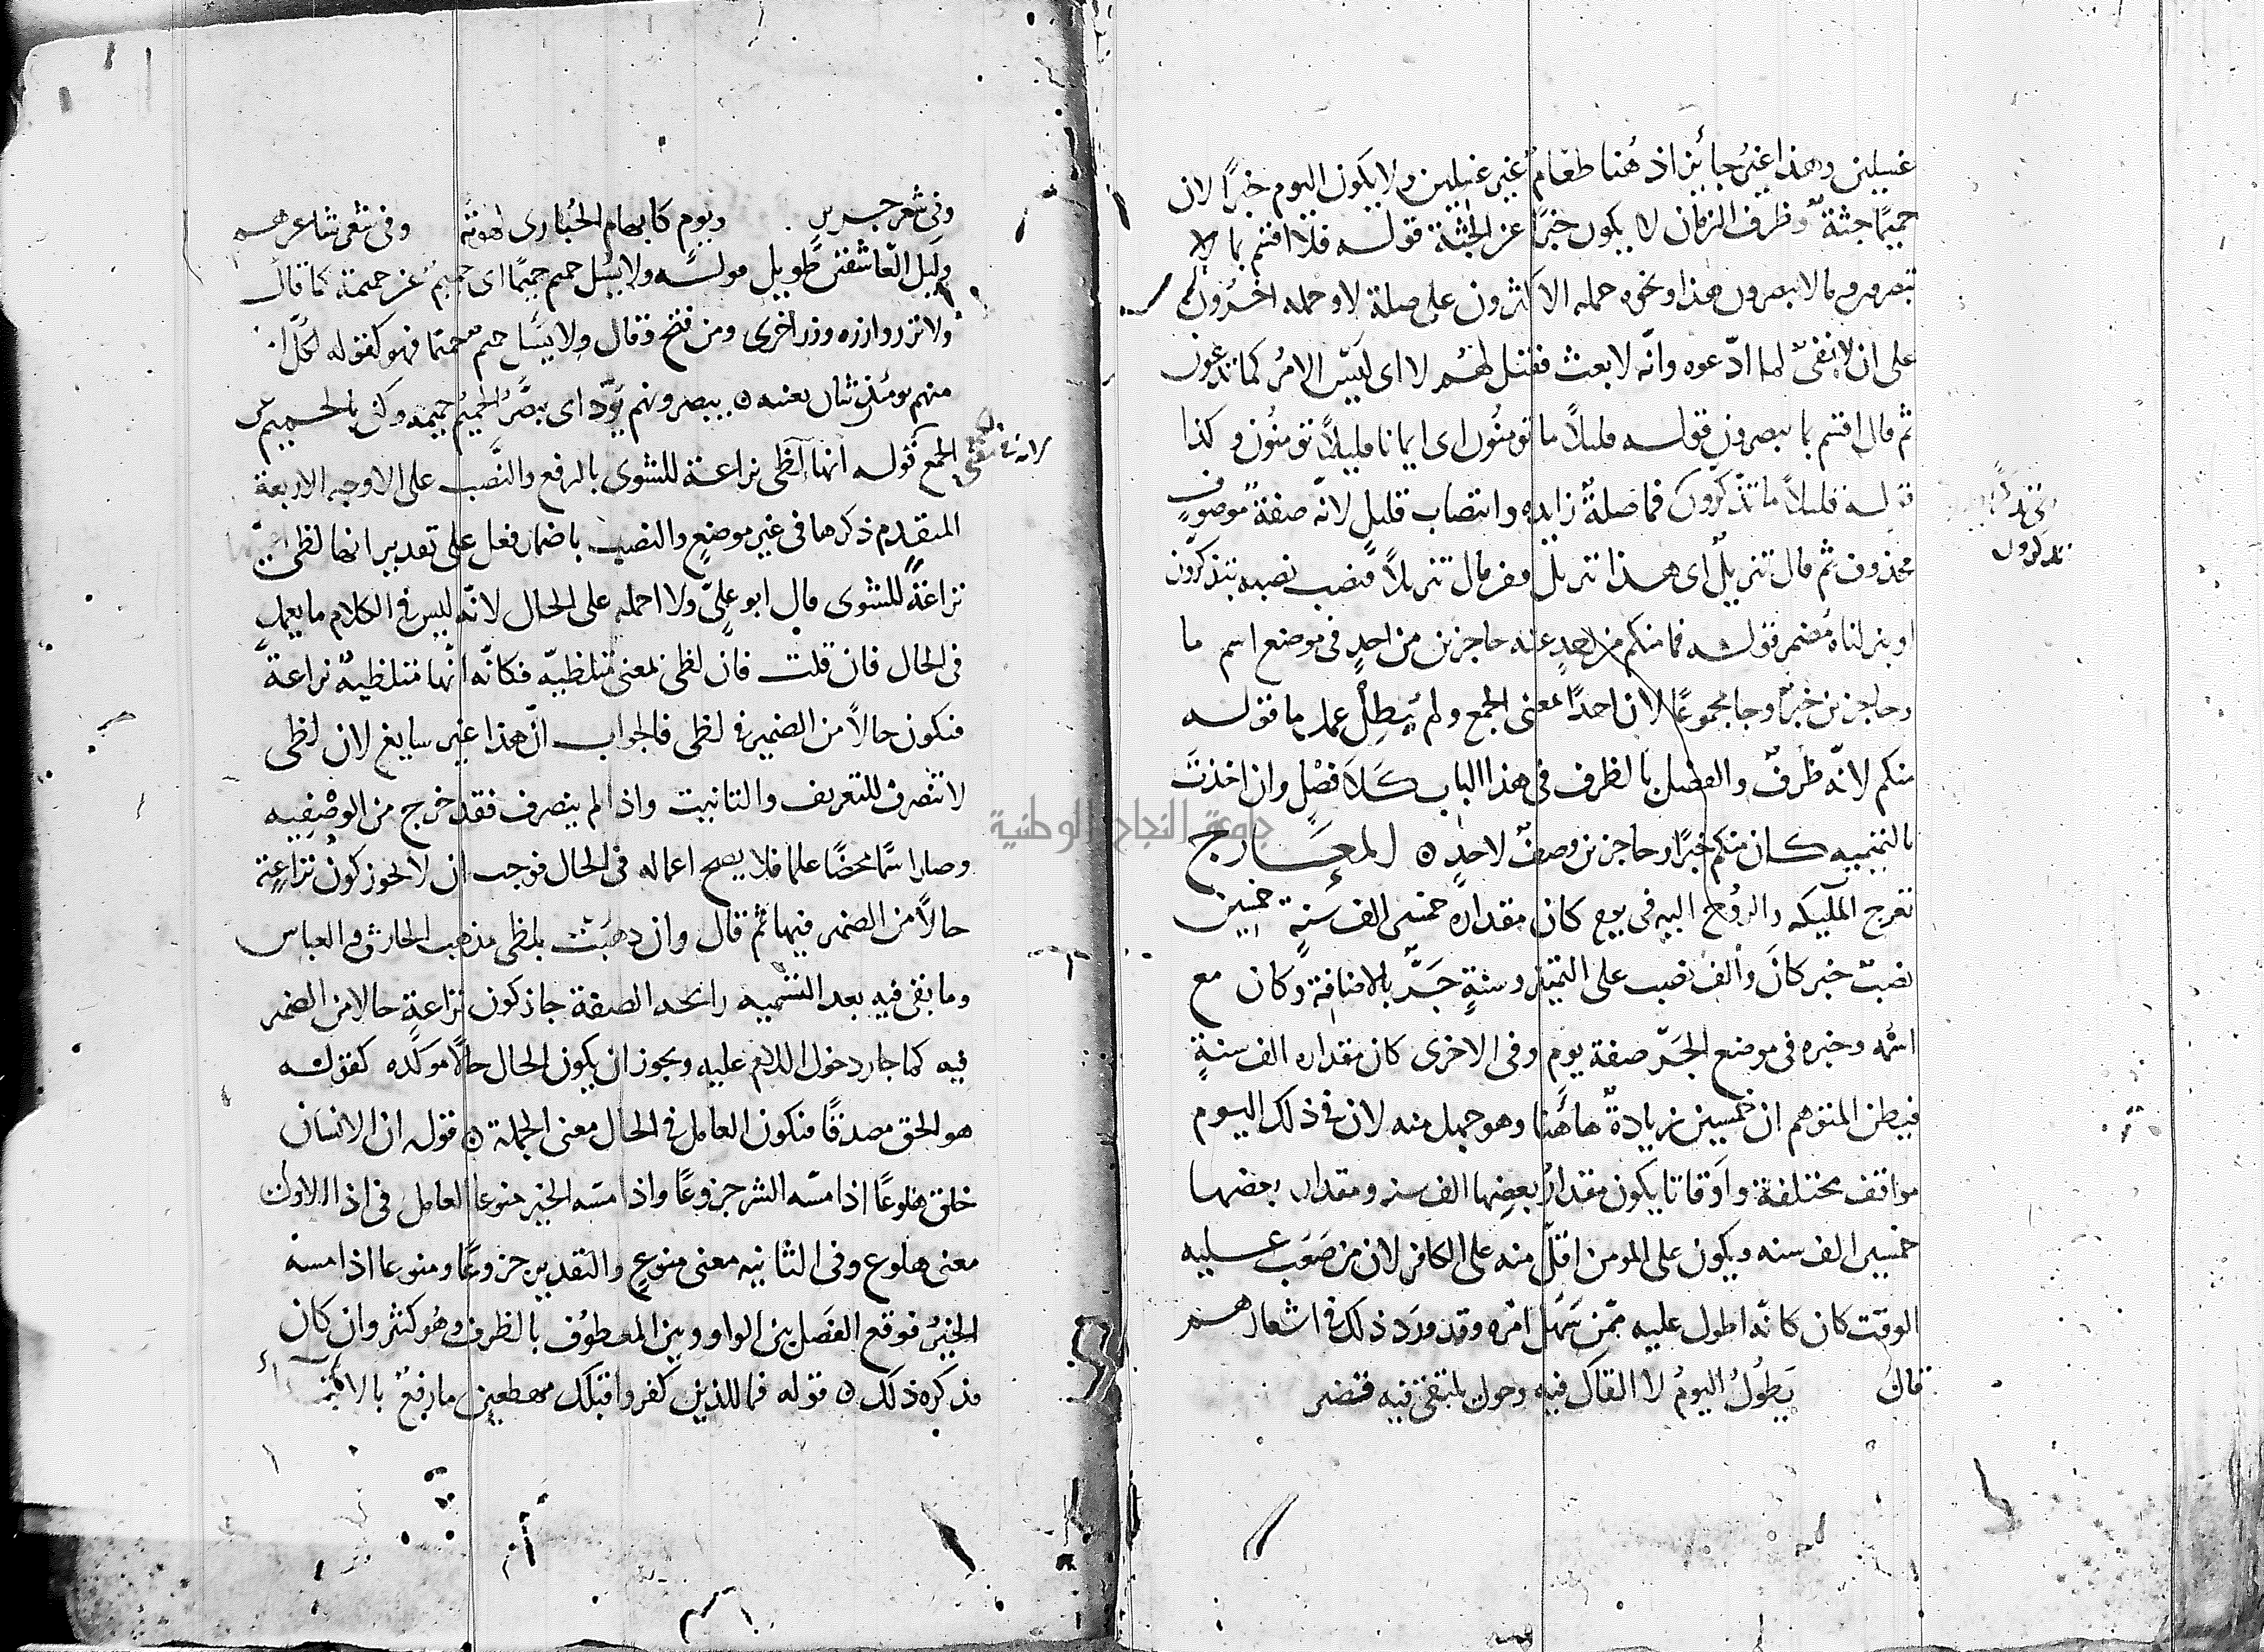 غسلين وهذا غير جائز اذ هنا طعام غير غسلين ولا يكون اليوم خبرًا لان
حميمًا جثة وظرف الزمان لا يكون خبرًا عن الجثة قوله فلا اقسم بما
تبصرون وما لا تبصرون هذا ونحوه حمله الاكثرون على صلة لا وحمله اخرون
على ان لا نفى لما ادّعوه وانّه لا بعث فقيل لهم لا اى ليس الامر كما تدعون
ثم قال اقسم بما تبصرون قوله قليلاً ما تومنُون اى ايمانا قليلاً تومنُون وكذا
قوله قليلاً ما تذكّرون فما صلةٌ زايده وانتصاب قليل لانّه صفة موصوفٍ
تذكرون
محذوف ثم قال تنزيلٌ اى هذا تنزيل ومن قال تنزيلاً فنصب نصبه بتذكّرون
او بنزلناه مُضمر قوله فما منكم من احدٍ عنه حاجزين من احدٍ فى موضع اسم ما
وحاجزين خبرٌ وجا مجموعًا لان احدًا بمعنى الجمع ولم يُبطِل عمل ما قوله
منكم لانّه ظرفٌ والفصل بالظرف فى هذا الباب كَلَا فصْلٍ وان اخذتَ
بالتميميه كان منكم خبرًا وحاجزين وصفٌ لاحدٍ المعَارج
تعرج المليكه والرُوح اليه فى يوم كان مقداره خمسى الف سَنةٍ خمسين
نصبَ خبر كانَ والفَ نصب على التمييز وسنةٍ جَرّ بالاضافة وكان مع
اسْمه وخبره فى موضع الجَرّ صفة يوم وفى الاخرى كان مقداره الف سنةٍ
فيظن المتوهم ان خمسين زيادةٌ هاهُنا وهو جهل منه لان فى ذلك اليوم
مواقف مختلفة واوقاتا يكون مقدارُ بعضِها الف سنه ومقدار بعضها
خمسين الف سنه ويكون على المومن اقلّ منه على الكافر لان من صَعَب عليه
الوقت كان كانّه اطول عليه ممّن سَهل امْره وقد ورَد ذلك فى اشعارهم
قال يَطُولُ اليومُ لا القاك فيه وحول نلتقى فيه قصير
وفى شعر جرير ويوم كابهام الحُبارى لهوته وفى شعر شاعرهم
وليل العاشقين طويل قوله ولا يُسل حميم حميمًا اى حميمٌ عن حميمة كما قال
ولا تزر وازره وزر اخرى ومن فتح وقال ولا يَسَل حميم حميما فهو كقوله لكل
منهم يومئذ شان يغنيه يبصرونهم يوَدّ اى يبصَّرُ الحميمُ حميمه وكنى بالحميم عن
الجمع قوله انها لظى نزاعة للشوى بالرفع والنَّصب على الاوجه الاربعة
المتقدم ذكرها فى غير موضعٍ والنصب باضمار فعل على تقدير انها لظى
نزاعةً للشوى قال ابو علىّ ولا احمله على الحال لانّه ليس فى الكلام ما يعمل
فى الحال فان قلت فان لظى بمعنى تتلظيه فكانّه انّها متلظيةٌ نزاعةً
فتكون حالاً من الضمير فى لظى فالجواب انّ هذا غير سايغ لان لظى
لا تنصرف للتعريف والتانيث واذا لم ينصرف فقد خرج من الوصْفيه
وصار اسمًا محضًا علما فلا يصح اعماله فى الحال فوجب ان لا يجوز كونُ نزاعةٍ
حالاً من الضمير فيها ثم قال وان ذهَبَت بلظى مذهب الحارث والعباس
وما بقى فيه بعد التسميه رائحه الصفة جاز كون نزاعةٍ حالا من الضمير
فيه كما جاز دخول اللام عليه ويجوز ان يكون الحال حالاً موكّده كقوله
هو الحق مصدقًا فتكون العامل فى الحال معنى الجملة قوله ان الانسان
خلق هلوعًا اذا مسّه الشر جزوعًا واذا مسّه الخير منوعا العامل فى اذا الاولى
معنى هلوع وفى الثانيه معنى منوعٍ والتقدير جزوعًا ومنوعا اذا مسه
الخيرُ فوقع الفَصل بين الواو وبين المعطوُف بالظرف وهُو كثير وان كان
قد كره ذلك قوله فمال الذين كفروا قبلك مهطعين ما رفعٌ بالا
جامعة النجاح الوطنية